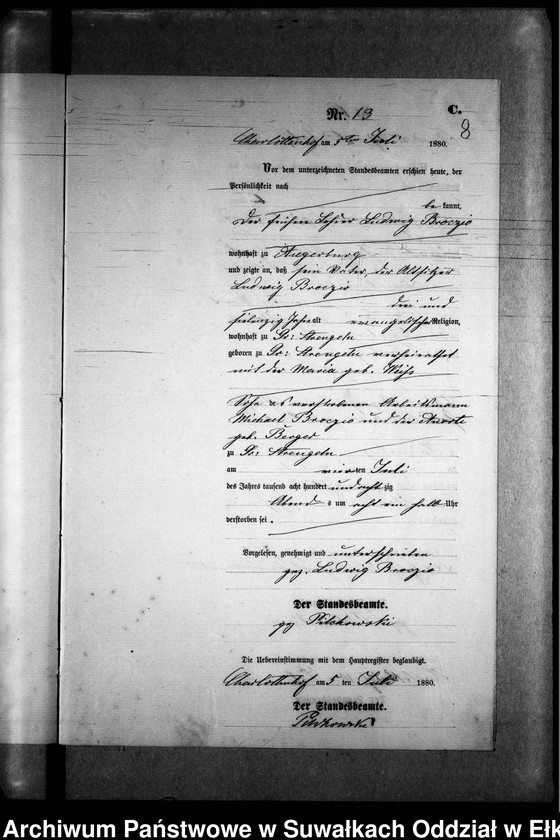 C.
Nr. 13
8
Charlottenhof am 5ten Juli 1880.
Vor dem unterzeichneten Standesbeamten erschien heute, der
Persönlichkeit nach
be kannt,
der frühere Lehrer Ludwig Broczio
wohnhaft zu Angerburg
und zeigte an, daß sein Vater, der Altsitzer
Ludwig Broczio
drei und
siebenzig Jahre alt evangelischer Religion,
wohnhaft zu Gr: Strengeln
geboren zu Gr: Strengeln verheirathet
mit der Maria geb. Weiß
Sohn des verstorbenen Arbeitsmann
Michael Broczio und der
geb. Berger
zu Gr: Strengeln
am vierten Juli
des Jahres tausend acht hundert und acht zig
Abend s um acht ein halb Uhr
verstorben sei.
Vorgelesen, genehmigt und unterschrieben
gez. Ludwig Broczio
Der Standesbeamte.
gez Pilchowski
Die Uebereinstimmung mit dem Hauptregister beglaubigt.
Charlottenhof am 5 ten Juli 1880.
Der Standesbeamte.
Pilchowski
Archiwum Państwowe w Suwałkach Oddział w Ełk